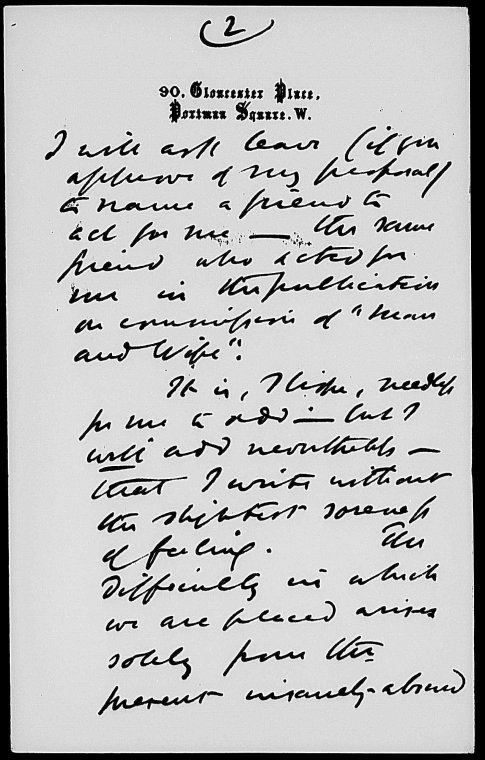 2
90, Gloucester Place,
Portman Square. W.
I will ask leave (if you
approve of my proposal)
to name a friend to
act for me — the same
friend who acted for
me in the publication
on commission of "Man
and Wife".
It is, I hope, needless
for me to add — but I
will add nevertheless —
that I write without
the slightest soreness
of feeling. The
difficulty in which
we are placed arises
solely from the
present insanely-absurd